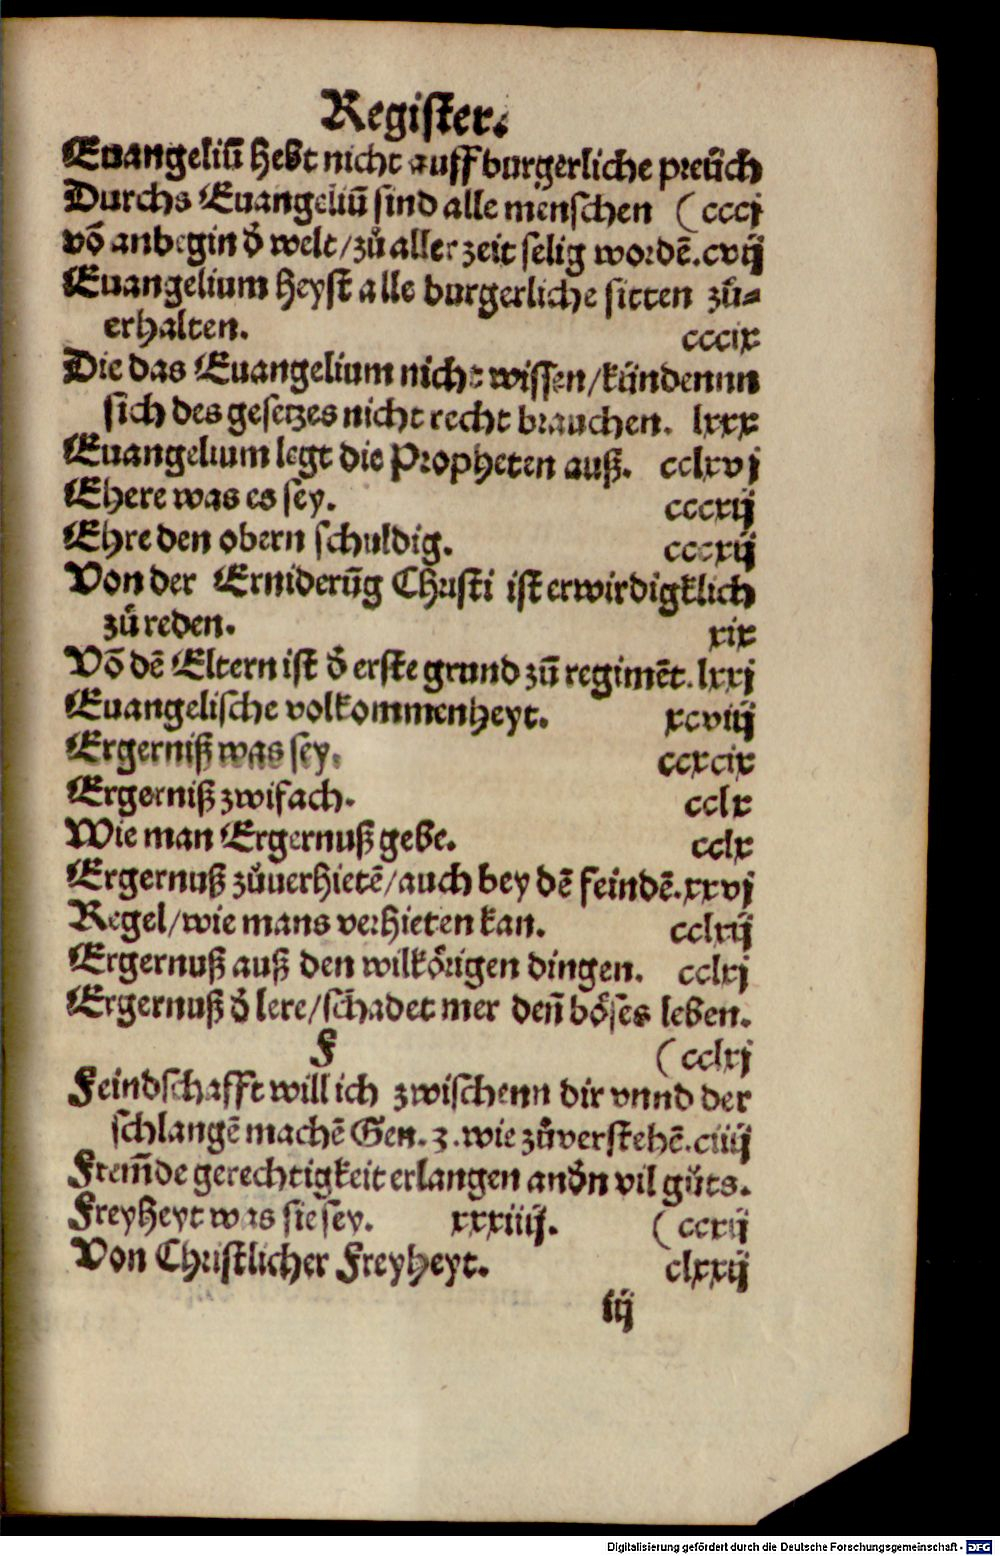 Register.
Euangeliū hebt nicht auff burgerliche preüch
Durchs Euangeliū sind alle menschen (cccj
vō anbegin d̄ welt/zů aller zeit selig wordē.cvij
Euangelium heyst alle burgerliche sitten zů-
erhalten. cccix
Die das Euangelium nicht wissen/kündennn
sich des gesetzes nicht recht brauchen. lxxx
Euangelium legt die Propheten auß. cclxvj
Ehere was es sey. cccxij
Ehre den obern schuldig. cccxij
Von der Erniderūg Christi ist erwirdigklich
zů reden. xix
Vō dē Eltern ist d̄ erste grund zū regimēt. lxxj
Euangelische volkommenheyt. xcviij
Ergerniß was sey. ccxcix
Ergerniß zwifach. cclx
Wie man Ergernuß gebe. cclx
Ergernuß zůuerhietē/auch bey dē feindē.xxvj
Regel/wie mans verhieten kan. cclxij
Ergernuß auß den wilkörigen dingen. cclxj
Ergernuß d̄ lere/schadet mer deñ böses leben.
F (cclxj
Feindschafft will ich zwischenn dir vnnd der
schlangē machē Gen. 3. wie zůverstehē.ciiij
Frem̄de gerechtigkeit erlangen and̄n vil gůts.
Freyheyt was sie sey. xxxiiij. (ccxij
Von Christlicher Freyheyt. clxxij
iij
Digitalisierung gefördert durch die Deutsche Forschungsgemeinschaft - DFG